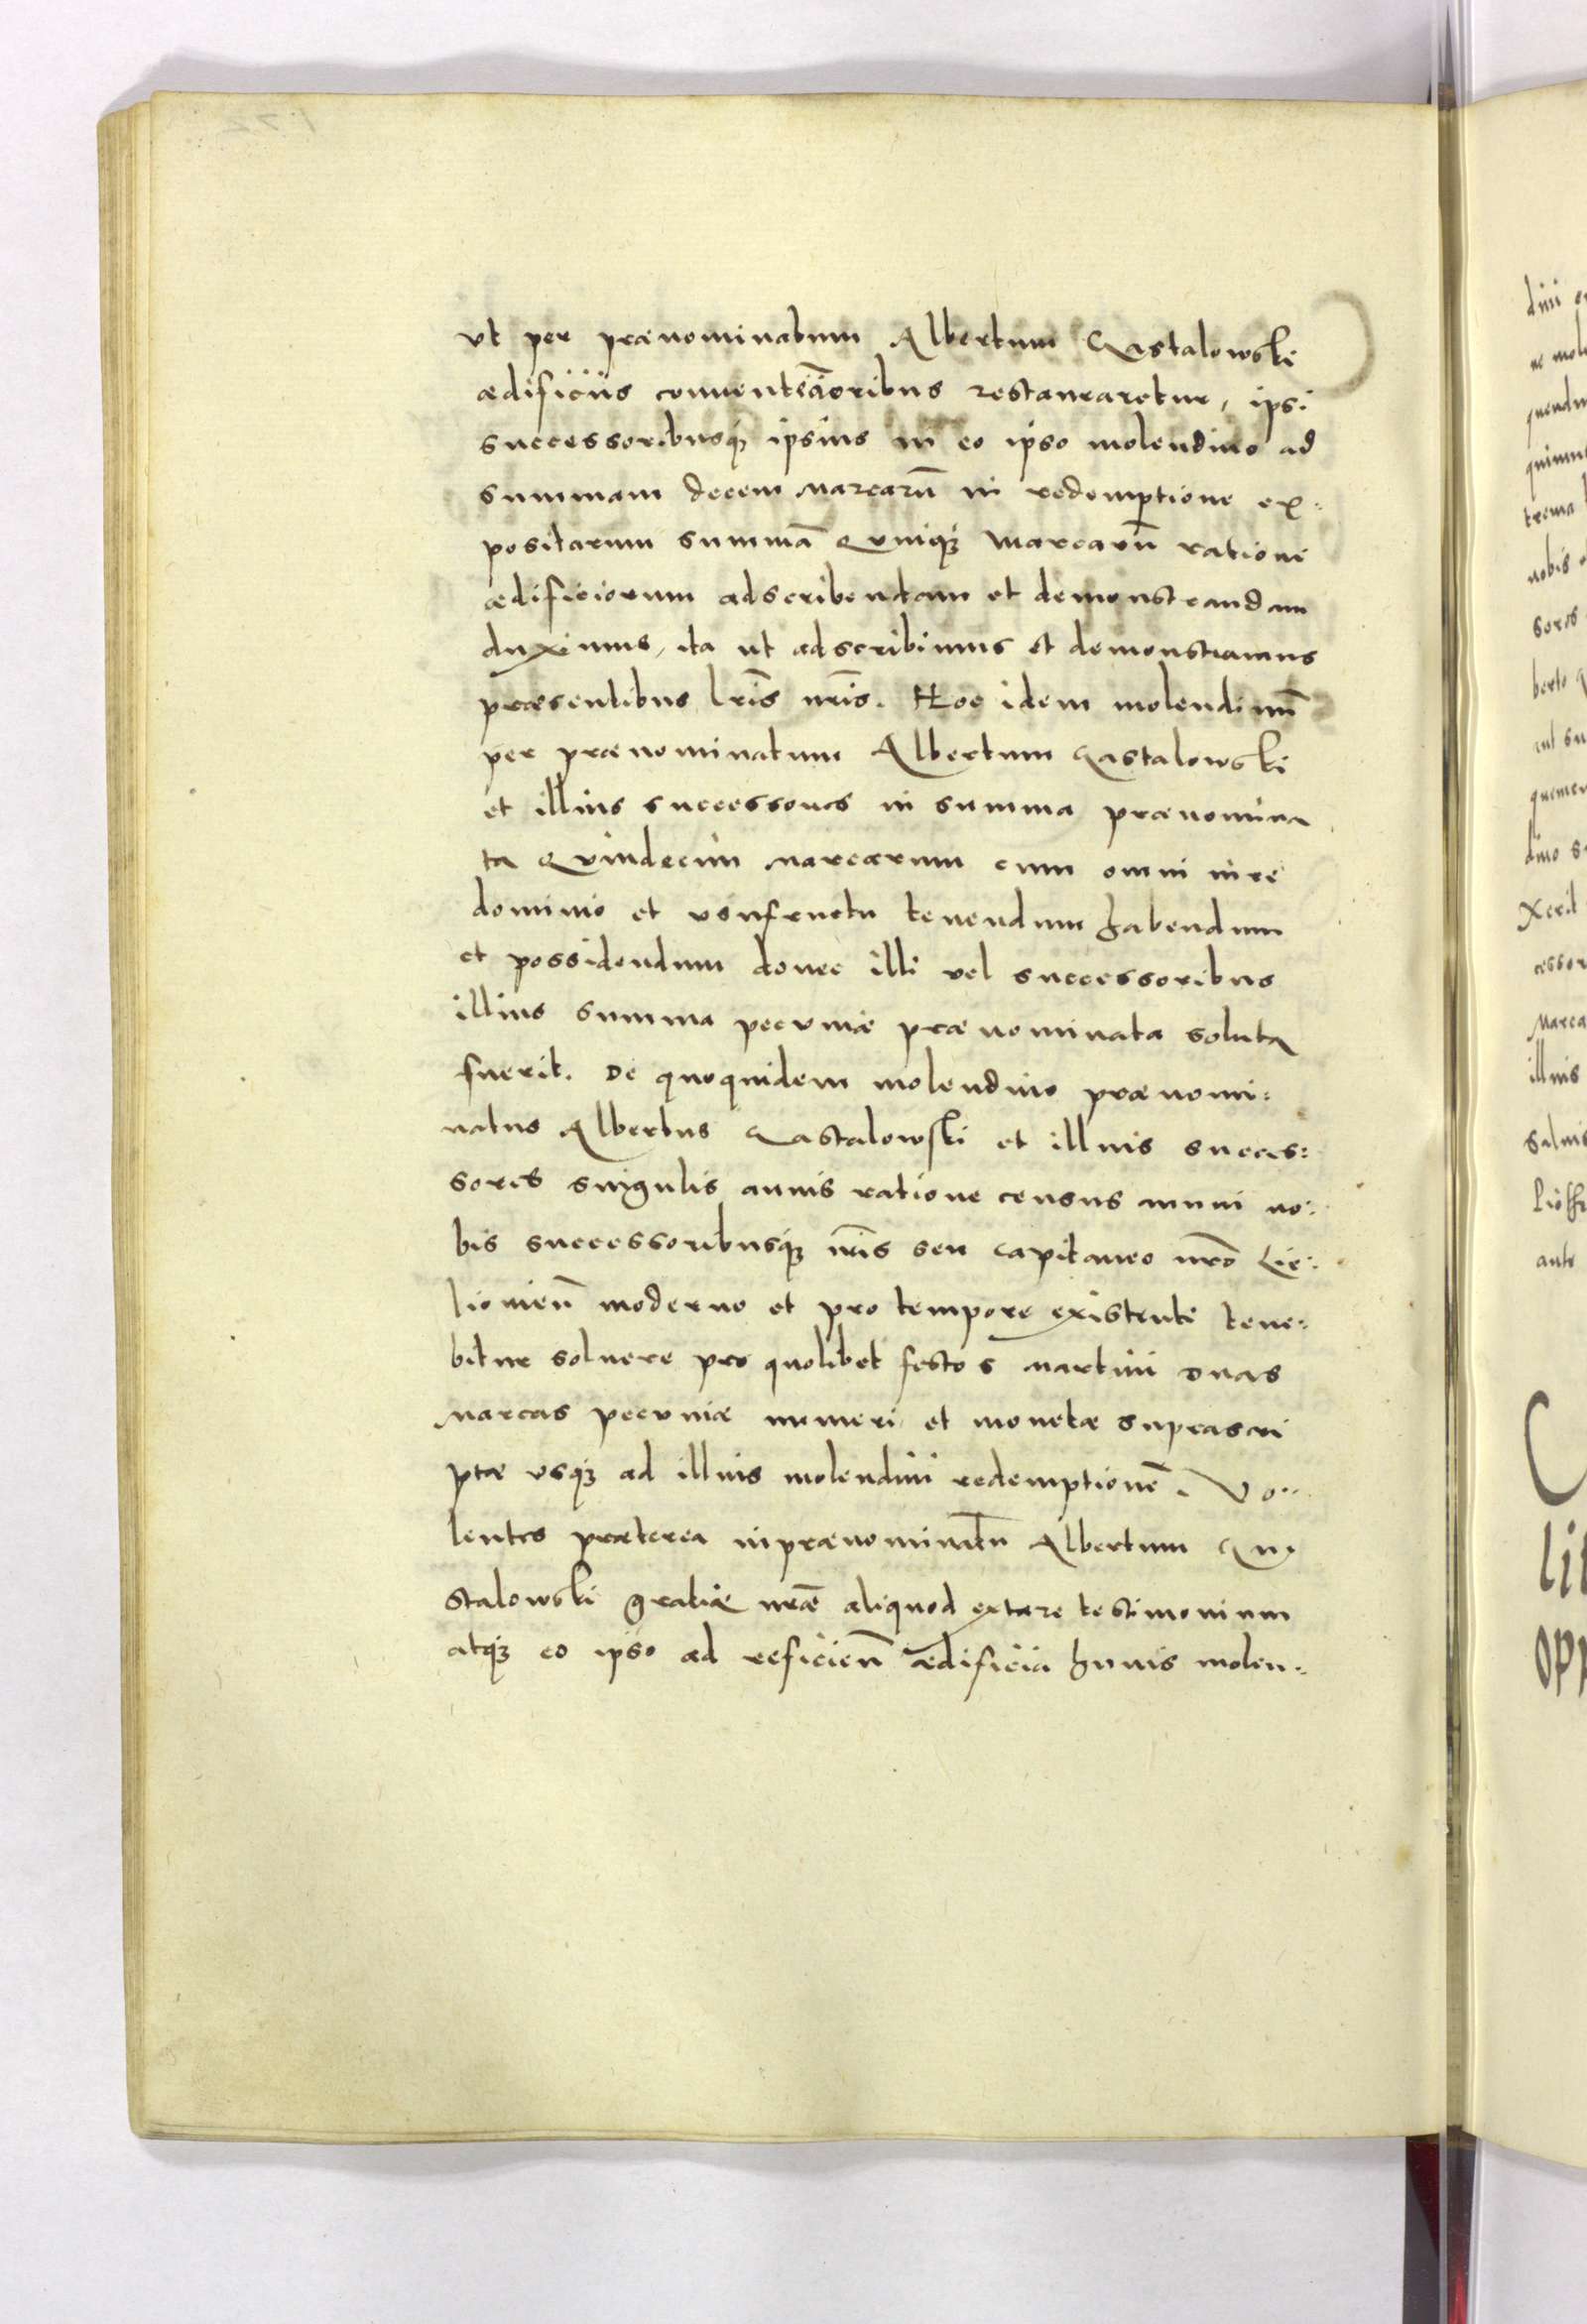 ut per prænominatum Albertum Gastalowski
ædificiis conuentiãoribus restauraretur, ipsi
successoribusq; ipsius in eo ipso molendino ad
summam decem marcarũ in redemptione ex:
positarum summã Quinq; marcarũ ratione
ædificiorum adscribendam et demonstrandam
duximus, ita ut adscribimus et demonstramus
præsentibus lr̃is nr̃is. Hoc idem molendinũ
per prænominatum Albertum Gastalowski
et illius successores in summa prænomina
ta Quindecim marcarum cum omni iure
dominio et usufructu tenendum habendum
et possidendum donec illi vel successoribus
illius summa pecuniæ prænominata soluta
fuerit. De quoquidem molendino prænomi:
natus Albertus Gastalowski et illius succes:
sores singulis annis ratione census annui no:
bis successoribusq; nr̃is seu Capitaneo nr̃o Lie:
liouien̄ moderno et pro tempore existenti tene:
bitur soluere pro quolibet festo S Martini duas
marcas pecuniæ numeri et monetæ suprascri
ptæ usq; ad illius molendini redemptionẽ. Vo:
lentes præterea in prænominatũ Albertum Ga
stalowski gratiæ nr̃æ aliquod extare testimonium
atq; eo ipso ad reficien̄ ædificia huius molen: